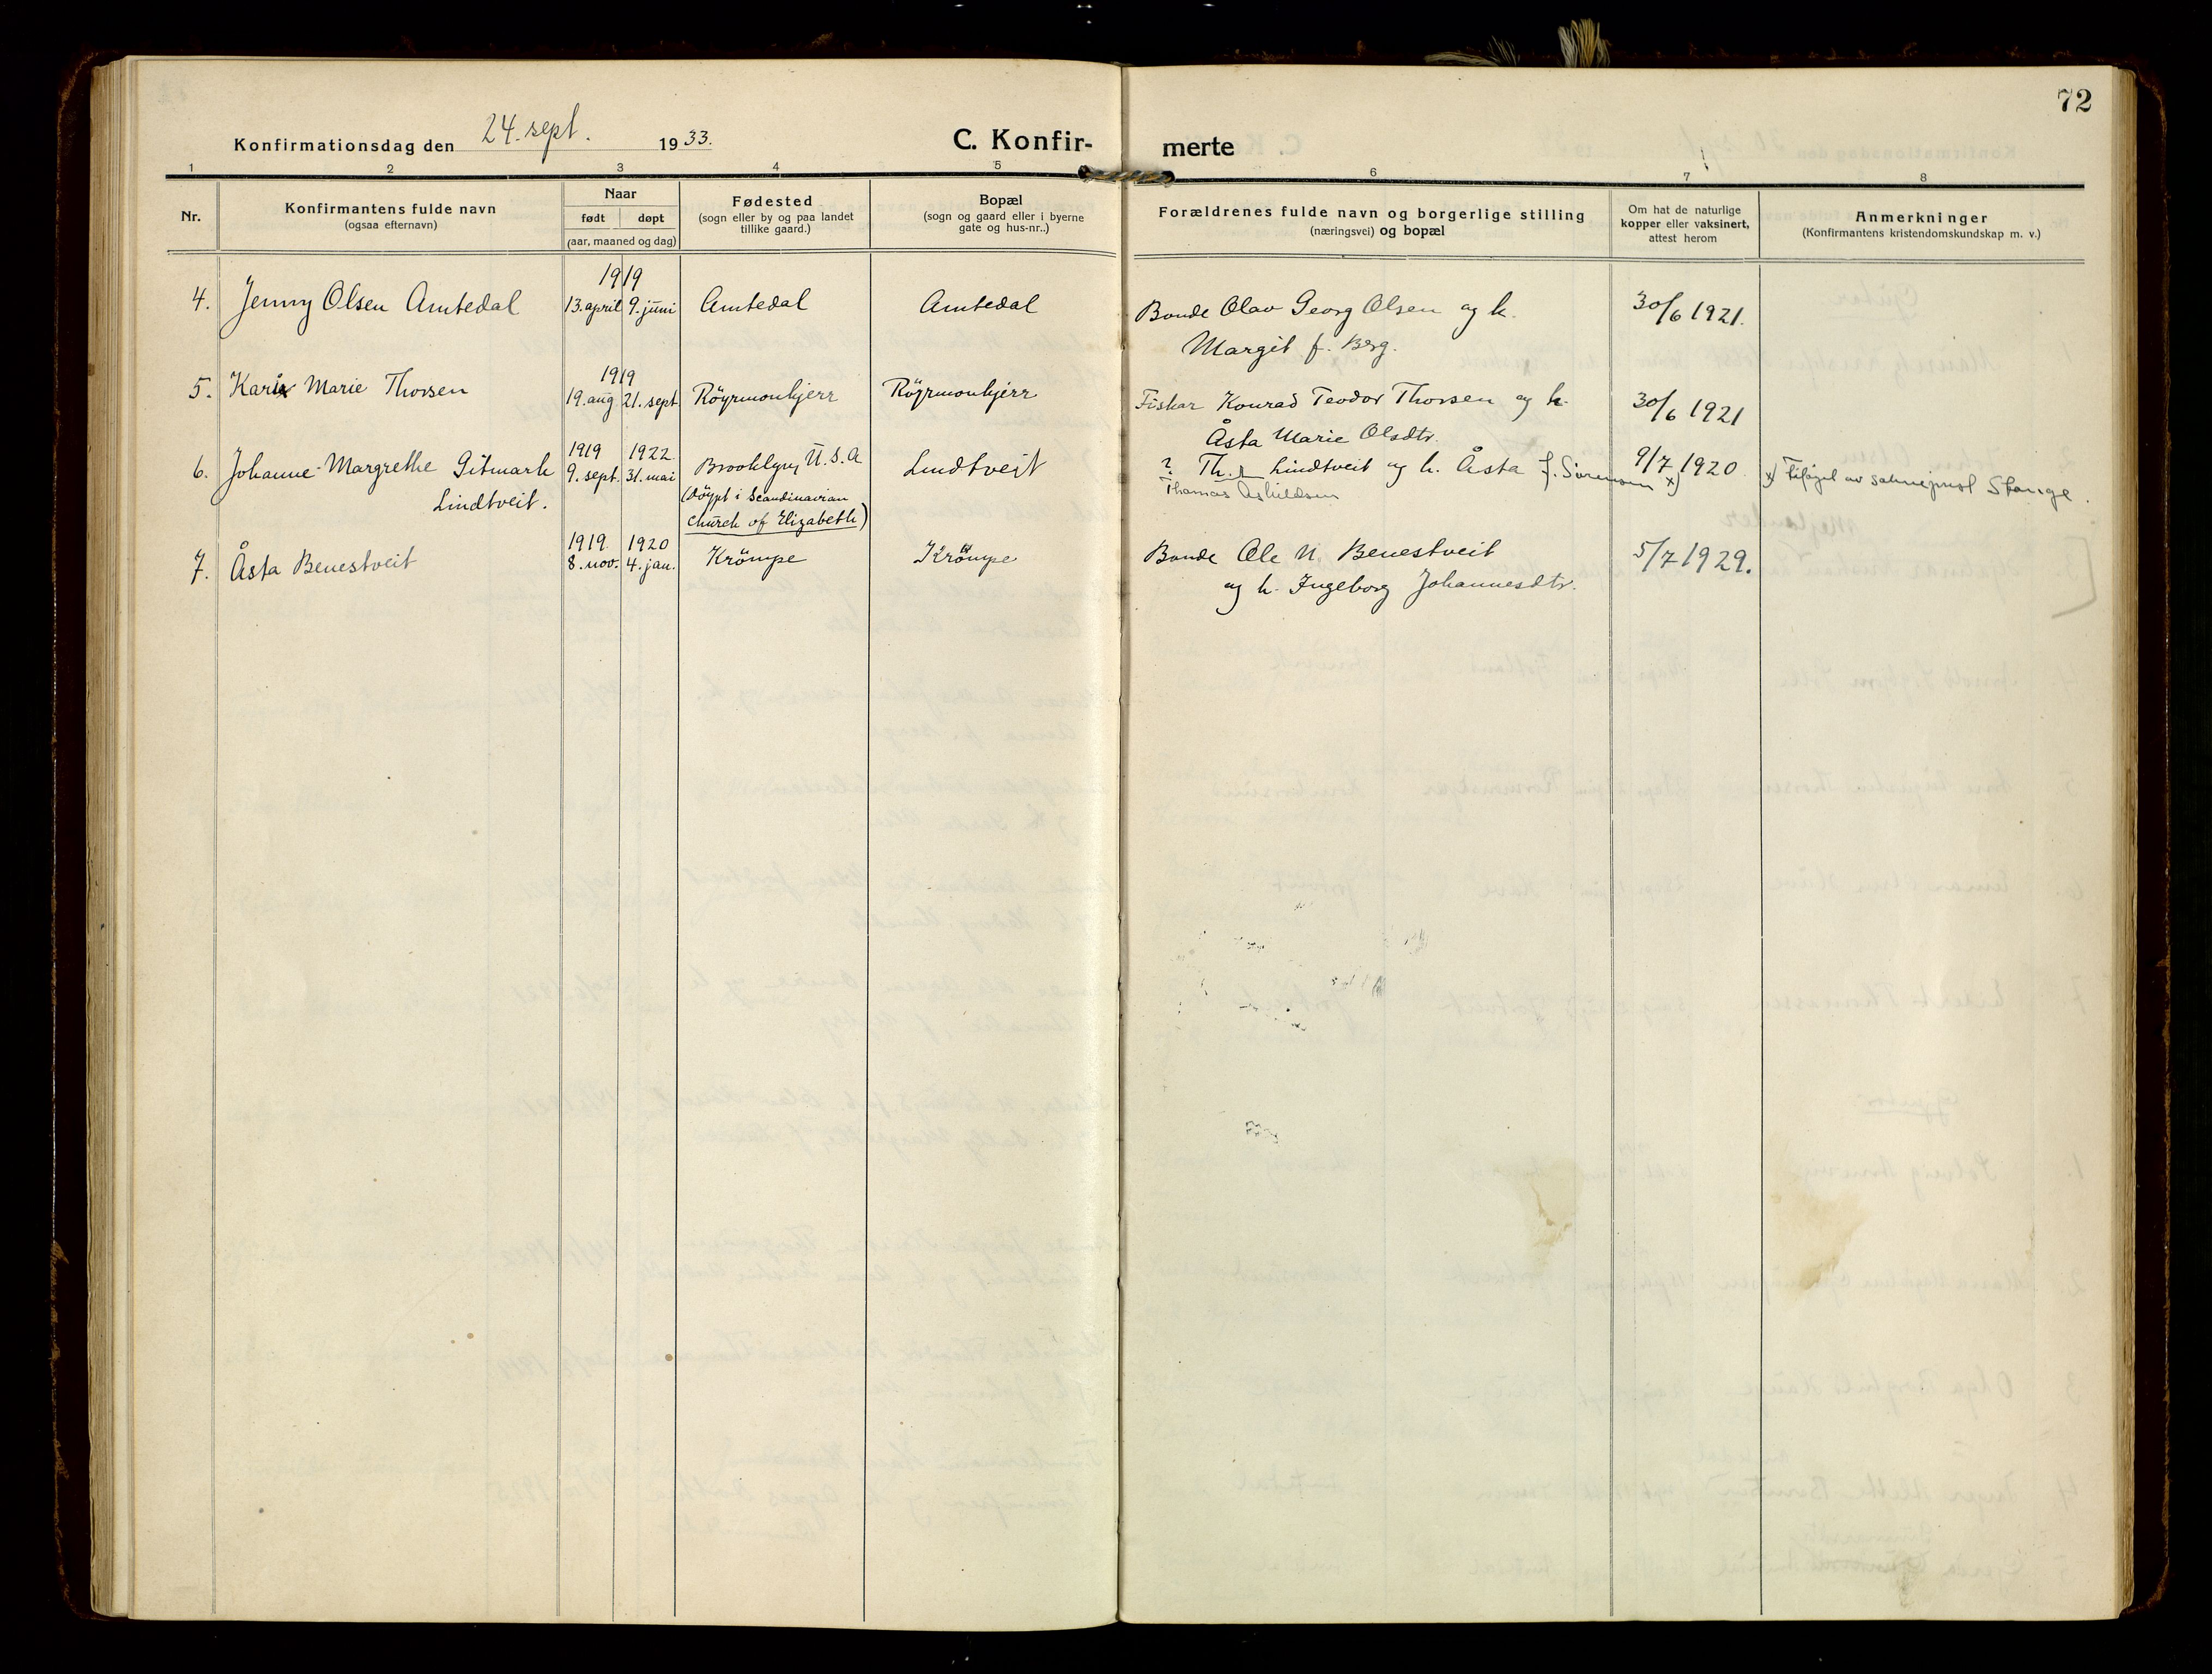 72
Konfirmationsdag den 24. sept. 1933.
C. Konfir-
merte
1 2 3 4 5 6 7 8
Nr.
Konfirmantens fulde navn
(ogsaa efternavn)
Naar
født døpt
(aar, maaned og dag)
Fødested
(sogn eller by og paa landet
tillike gaard.)
Bopæl
(sogn og gaard eller i byerne
gate og hus-nr..)
Forældrenes fulde navn og borgerlige stilling
(næringsvei) og bopæl
Om hat de naturlige
kopper eller vaksinert,
attest herom
Anmerkninger
(Konfirmantens kristendomskundskap m. v.)
1919
4. Jenny Olsen Amtedal 13. april 9. juni Amtedal Amtedal Bonde Olav Georg Olsen og h. 30/6 1921.
Margit f. Berg.
1919
5. Kari Marie Thorsen 19. aug 21. sept Röyrmonkjerr Röyrmonkjerr Fiskar Konrad Teodor Thorsen og h. 30/6 1921
Åsta Marie Olsdtr.
1919 1922
6. Johanne Margrethe Gitmark 9. sept. 31. mai Brooklyn, U.S.A Lindtveit ? Th. Lindtveit og h. Åsta f. Sörensen x) 9/7 1920. x) Tilföyet av sokneprest Stange.
Lindtveit. (Döypt i Scandinavian Thomas Askildsen
church of Elizabeth)
1919. 1920
7. Åsta Benestveit 8. nov. 4. jan. Krömpe Krömpe Bonde Ole N. Benestveit 5/7 1929.
og h. Ingeborg Johannesdtr.